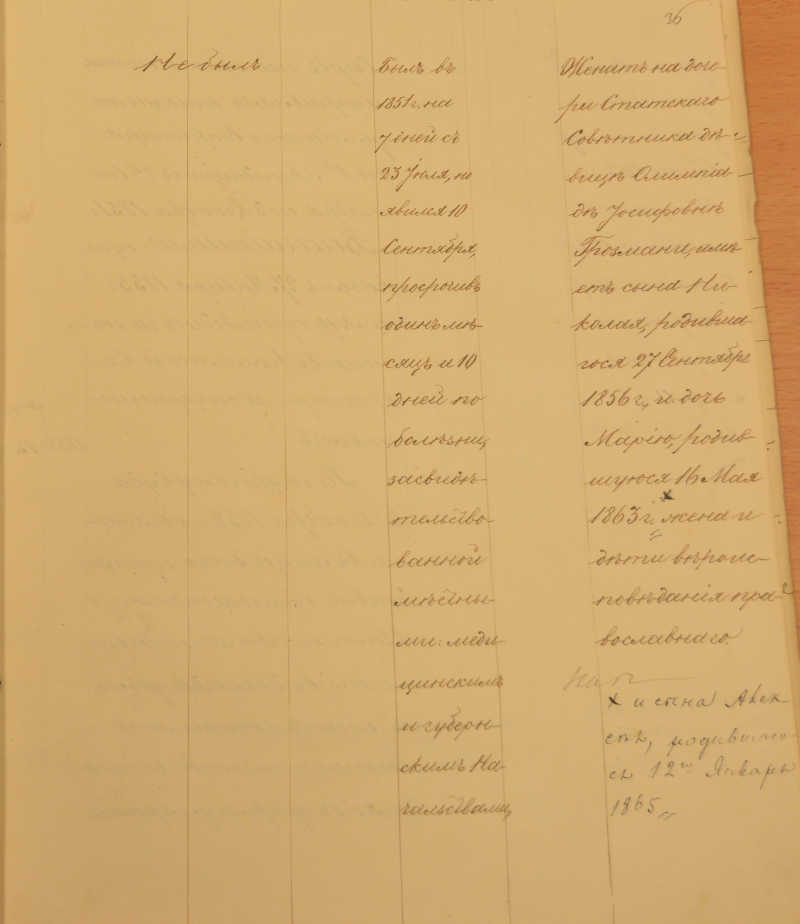 36
Не былъ
Былъ въ
1851 г. на
7 дней съ
23 Іюля, но
явился 10
Сентября,
просрочивъ
одинъ мѣ-
сяцъ и 10
дней по
болѣзни,
засвидѣ-
тельство-
ванной
мѣстны-
ми: меди-
цинскимъ
и губерн-
скимъ На-
чальствами,
Женатъ на доче-
ри Статскаго
Совѣтника дѣ-
вицѣ Олимпіа-
дѣ Іосифовнѣ
Грозмани, имѣ-
етъ сына Ни-
колая, родивша-
гося 27 Сентября
1856 г., и дочь
Марію, родив-
шуюся 16 Мая
1863 г. х жена и
дѣти вѣроис-
повѣданія пра-
вославнаго.
х и сына Алек-
сѣя, родившаго-
ся 12го Января
1865